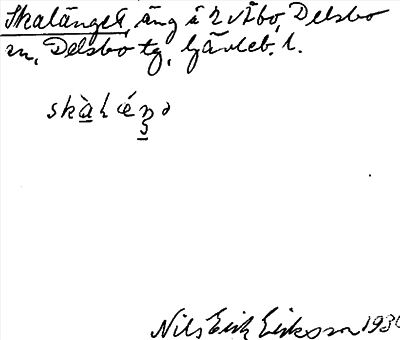 Skalänget, äng å 2 Åbo, Delsbo
sn, Delsbo tg, Gävleb. l.
Nils Erik Eriksson 1930